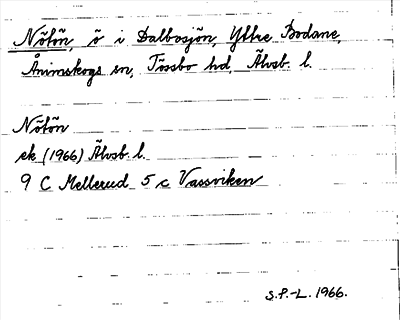 Nötön, ö i Dalbosjön, Yttre Bodane,
Ånimskogs sn, Tössbo hd, Älvsb. l.
Nötön
ek (1966) Älvsb. l.
9 C Mellerud 5 c Vassviken
S.F.-L. 1966.